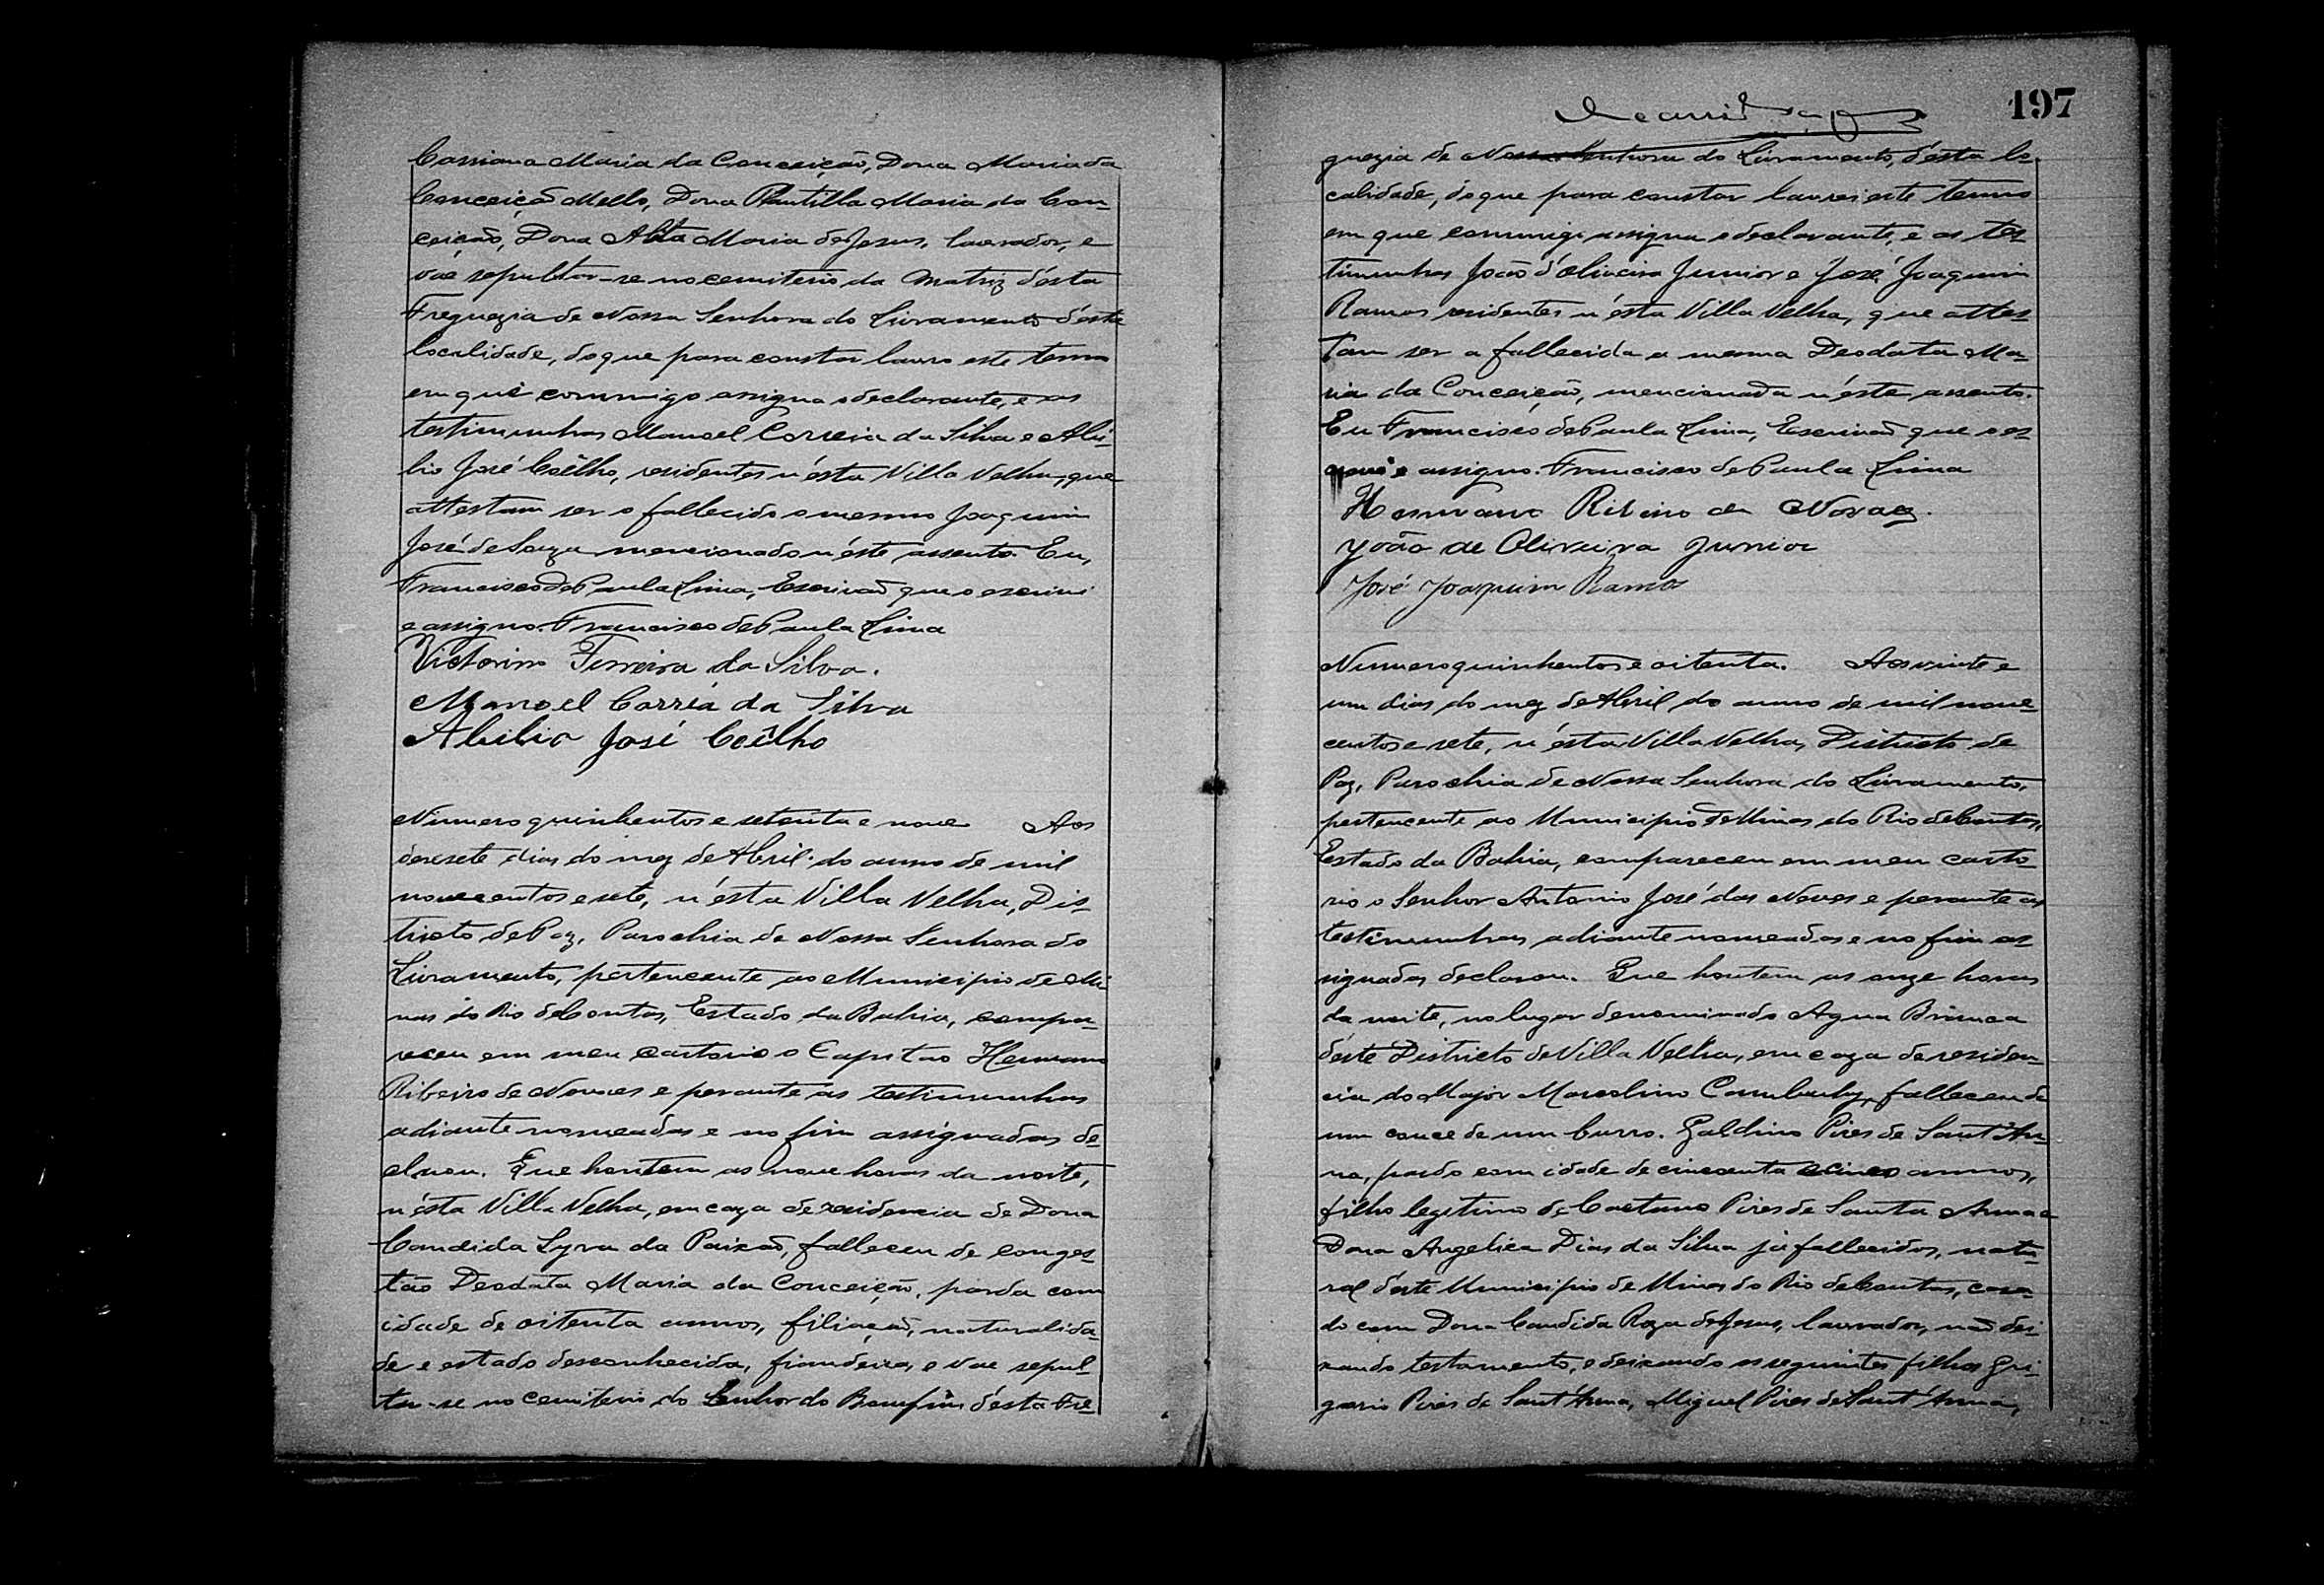 Cassiana Maria da Conceição, Dona Maria da
Conceição Mello, Dona Plautilla Maria da Con-
ceição, Dona Alta Maria de Jesus, lavrador, e
vae sepultar-se no cemiterio da Matriz d'ésta
Freguezia de Nossa Senhora do Livramento d'ésta
localidade, do que para constar lavro este termo
em que commigo assigna o declarante, e as
testimunhas Manoel Correia da Silva e Abi-
lio José Coêlho, residentes n'ésta Villa Velha, que
attestam ser o fallecido o mesmo Joaquim
José de Souza mencionado n'éste assento. Eu,
Francisco de Paula Lima, Escrivaõ que o escrivi
e assigno. Francisco de Paula Lima
Victorino Ferreira da Silva.
Manoel Corrêa da Silva
Abilio José Coêlho
Numero quinhentos e setenta e nove Aos
desesete dias do mez de Abril do anno de mil
novecentos e sete, n'ésta Villa Velha, Dis-
tricto de Paz, Parochia de Nossa Senhora do
Livramento, pertencente ao Municipio de Mi
nas do Rio de Contas, Estado da Bahia, compa-
receu em meu cartorio o Capitao Hermano
Ribeiro de Novaes e perante as testimunhas
adiante nomeadas e no fim assignadas de-
clarou. Que hontem as nove horas da noite,
n'ésta Villa Velha, em caza de residencia de Dona
Candida Lyra da Paixaõ, falleceu de conges-
tão Deodata Maria da Conceição, parda com
idade de oitenta annos, filiaçaõ, naturalida-
de e estado desconhecida, fiandeira, e vae sepul-
tar-se no cemiterio do Senhor do Bomfim d'ésta Fre-
197
guezia de Nossa Senhora do Livramento, d'ésta lo-
calidade, do que para constar lavrei este termo
em que commigo assigna o declarante, e as tes-
timunhas João d'Oliveira Junior e José Joaquim
Ramos residentes n'ésta Villa Velha, que attes-
tam ser a fallecida a mesma Deodata Ma-
ria da Conceição, mencionada n'éste assento.
Eu Francisco de Paula Lima, Escrivaõ que o es-
crivi e assigno. Francisco de Paula Lima
Hermano Ribeiro de Novaes.
João de Oliveira Junior
José Joaquim Ramos
Numero quinhentos e oitenta. Aos vinte e
um dias do mez de Abril do anno de mil nove-
centos e sete, n'ésta Villa Velha, Districto de
Paz, Parochia de Nossa Senhora do Livramento,
pertencente ao Municipio de Minas do Rio de Contas,
Estado da Bahia, compareceu em meu carto-
rio o Senhor Antonio José das Neves e perante as
testimunhas adiante nomeadas e no fim as-
signadas declarou. Que hontem as onze horas
da noite, no lugar denominado Agua Branca
d'éste Districto de Villa Velha, em caza de residen-
cia do Major Marcolino Cambouhy, falleceu de
um couce de um burro. Galdino Pires de Sant'An-
na, pardo com idade de cincoenta e cinco annos,
filho legitimo de Caetano Pires de Santa Anna e
Dona Angelica Dias da Silva já fallecidos, natu-
ral d'éste Municipio de Minas do Rio de Contas, casa-
do com Dona Candida Roza de Jesus, lavrador, naõ dei-
xando testamento, e deixando os seguintes filhos Gri-
gorio Pires de Sant'Anna, Miguel Pires de Sant'Anna,